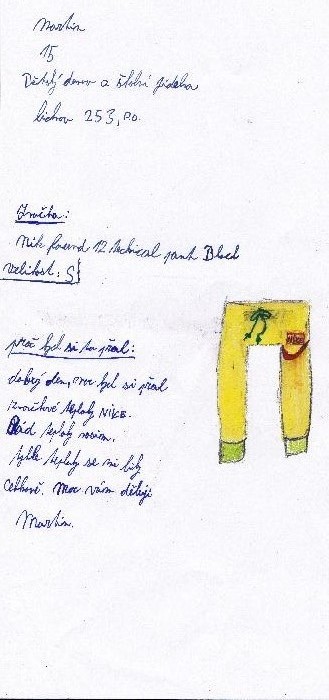 Martin
15
Dětský domov a školní jídelna
Lichov 253, P.O.
Značka:
Nik found 12 technical pant Black
Velikost: S
proč byl si to přál:
dobrý den, moc byl si přál
značkové tepláky NIKE.
Rád tepláky nosím.
tyhle tepláky se mi líbí
celkově. Moc vám děkuji
Martin.
NIKE